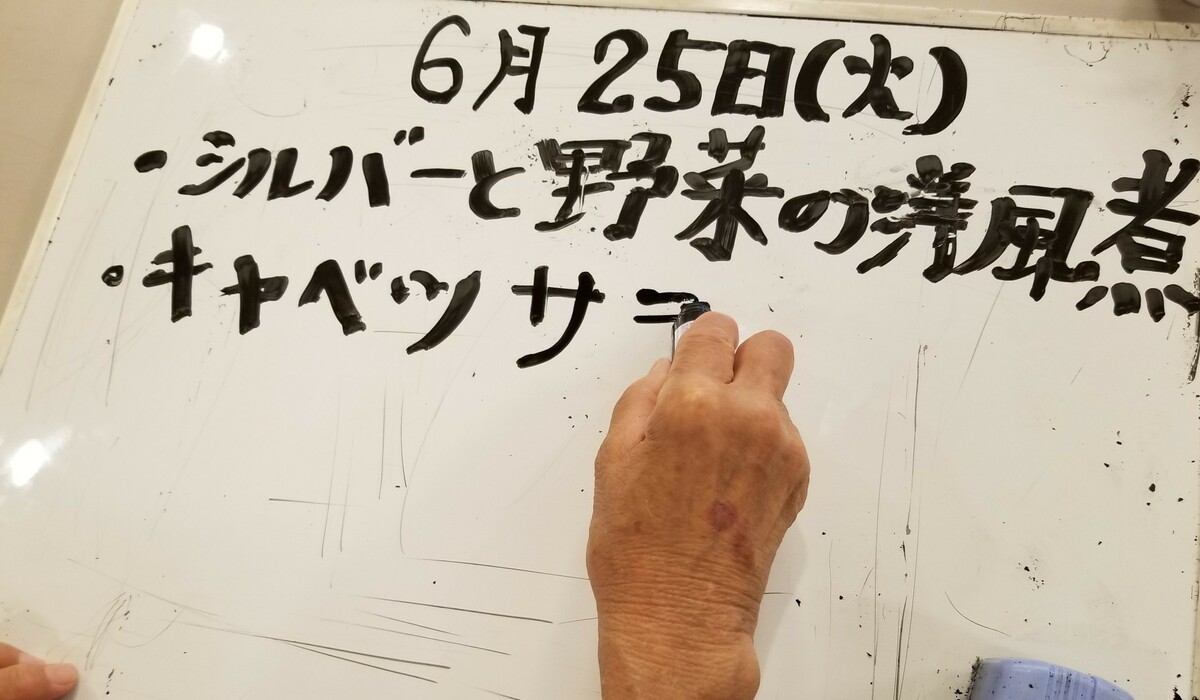 6月25日(火)
・シルバーと野菜の洋風煮
・キャベツサ